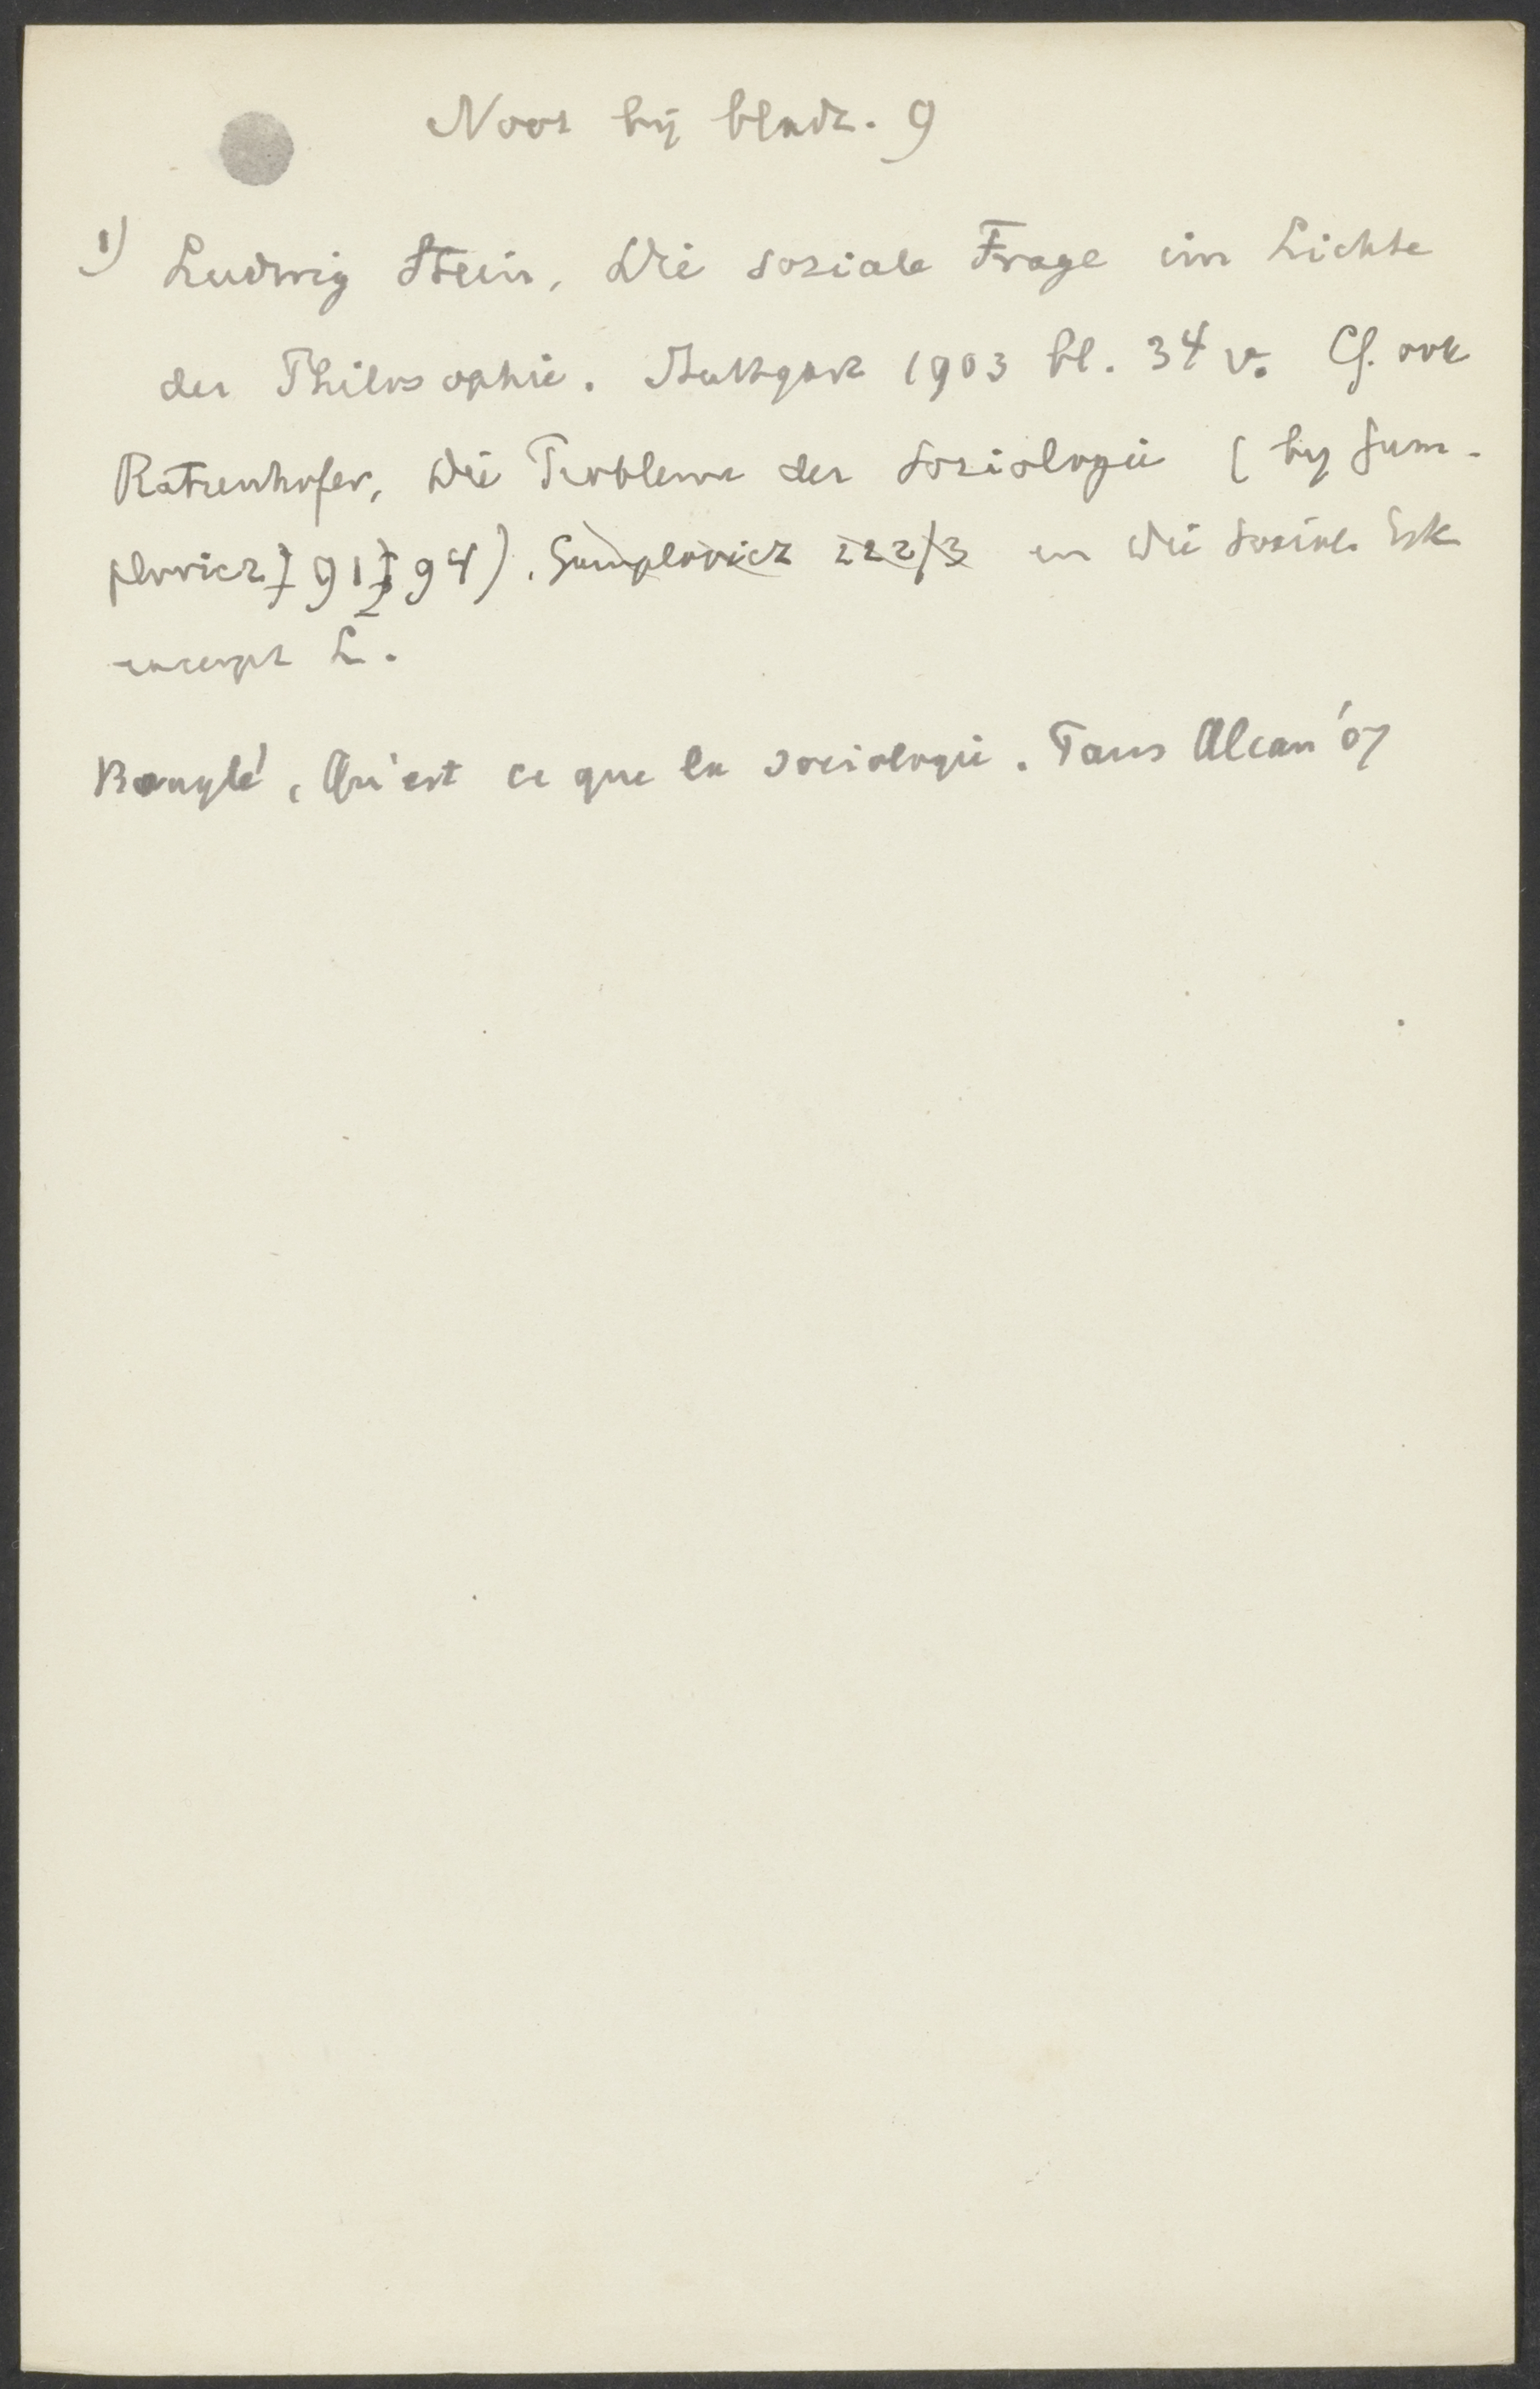 Noot bij bladz. 9
1) Ludwig Stein, Die soziale Frage im Lichte
der Philosophie. Stuttgart 1903 bl. 34 v. Cf. ook
Ratzenhofer, Die Probleme der Soziologie (bij Gum-
plovicz 91 94). Gumplovicz 222/3 en Die soziol. Erk
excerpt L.
Bouglé, Qu'est ce que la sociologie. Paris Alcan '07